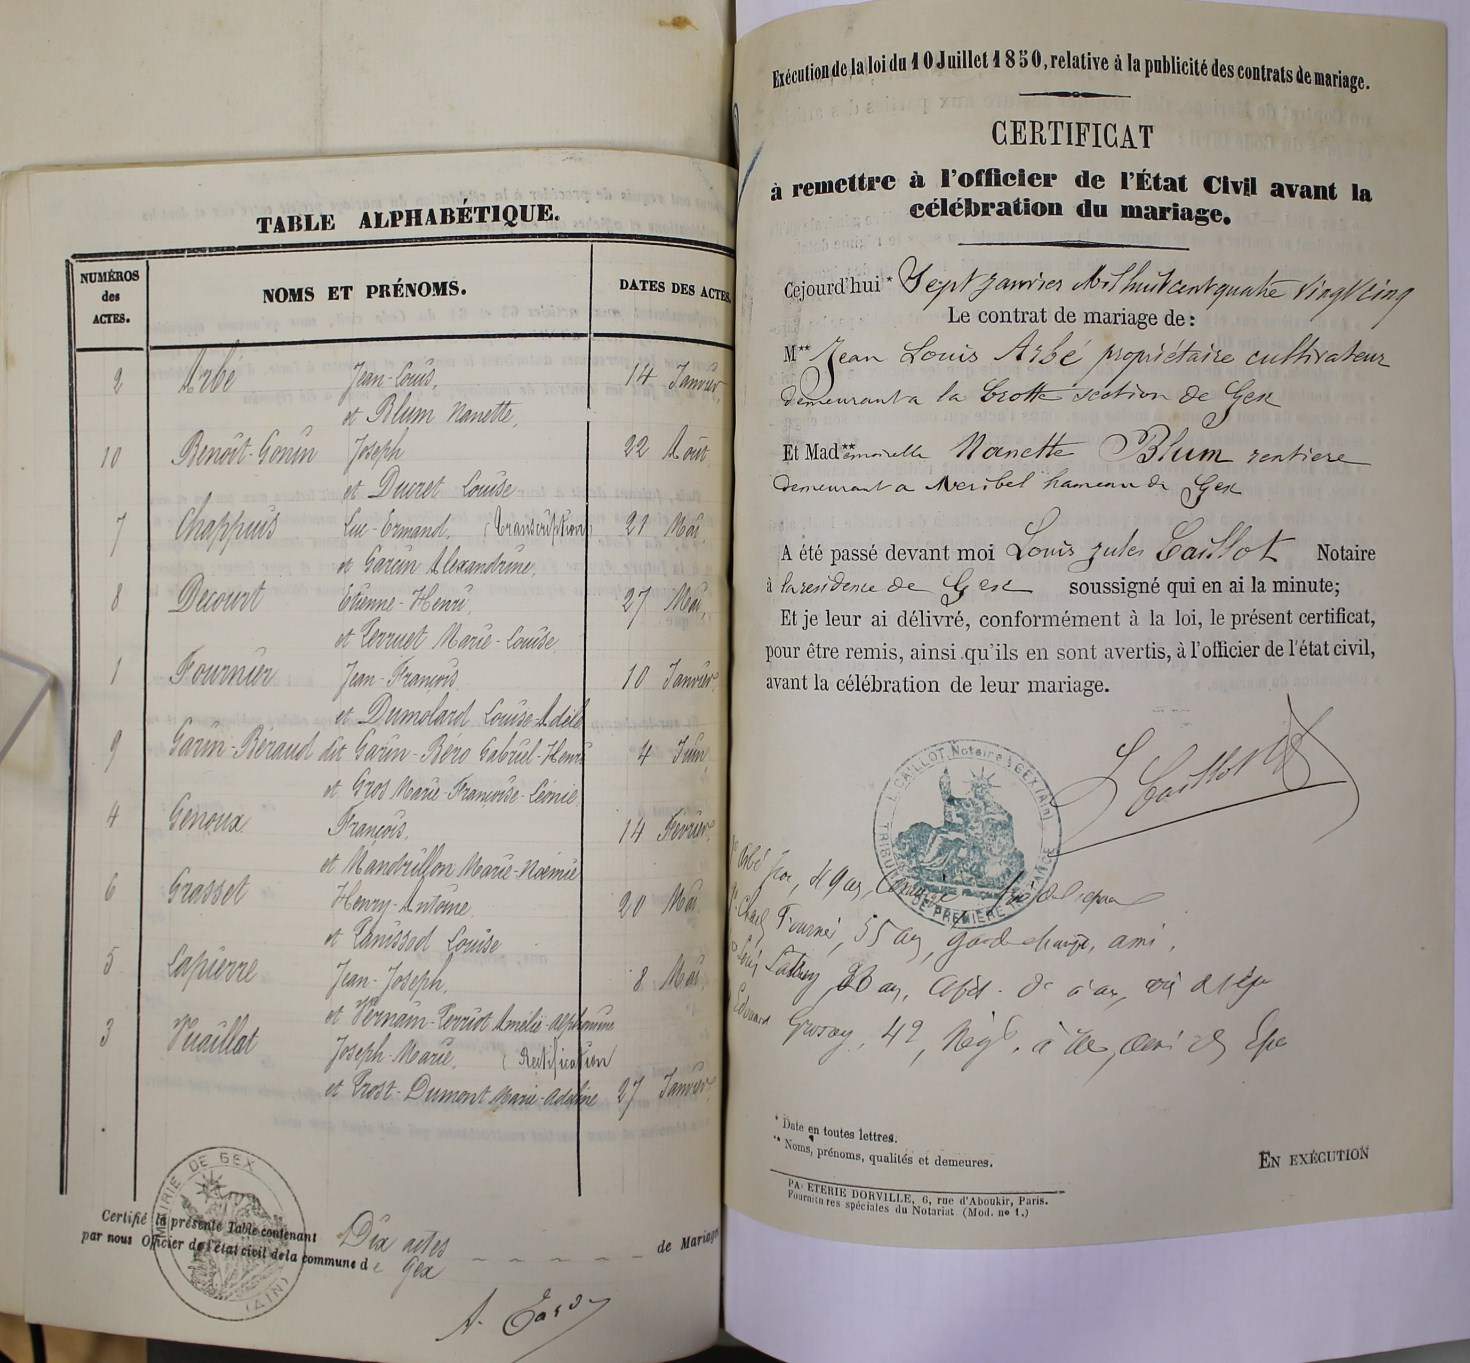 TABLE ALPHABÉTIQUE.
NUMÉROS
des
ACTES.
NOMS ET PRÉNOMS.
DATES DES ACTES.
2 Arbé Jean-Louis, 14 Janvier,
et Blum Nanette,
10 Benoît-Gonin Joseph 22 Août
et Ducret Louise
7 Chappuis Luc-Ermand. (Transcription) 21 Mai,
et Garin Alexandrine.
8 Decourt Etienne-Henri, 27 Mai,
et Perruet Marie-Louise
1 Fournier Jean-François 10 Janvier,
et Dumolard Louise-Adèle
9 Garin-Béraud dit Garin-Béro Gabriel-Henri 4 Juin,
et Gros Marie-Françoise-Léonie
4 Genoux François, 14 Février,
et Mandrillon Marie-Noémie
6 Grosset Henry-Antoine 20 Mai
et Panissod Louise
5 Lapierre Jean-Joseph, 8 Mai,
et Vernain-Perriot Amélie-Alphonsine
3 Vuaillat Joseph-Marie, (Rectification
et Prost-Dumont Marie-Adeline 27 Janvier,
MAIRIE DE GEX
(AIN)
Certifié la présente Table contenant Dix actes de Mariages
par nous Officier de l'état civil de la commune de Gex
Exécution de la loi du 10 Juillet 1850, relative à la publicité des contrats de mariage.
CERTIFICAT
à remettre à l'officier de l'État Civil avant la
célébration du mariage.
Cejourd'hui * Sept Janvier Mil huit cent quatre vingt cinq
Le contrat de mariage de :
M** Jean Louis Arbé propriétaire cultivateur
demeurant a la Crotte section de Gex
Et Mad**emoiselle Nanette Blum rentiere
demeurant a Meribel hameau de Gex
A été passé devant moi Louis Jules Caillot Notaire
à la residence de Gex soussigné qui en ai la minute;
Et je leur ai délivré, conformément à la loi, le présent certificat,
pour être remis, ainsi qu'ils en sont avertis, à l'officier de l'état civil,
avant la célébration de leur mariage.
L Caillot
L. CAILLOT, Notaire à GEX (Ain)
TRIBUNAL DE PREMIÈRE INSTANCE
Arbé 49 ans,
Fournier, 55 ans, garde champ, ami.
Louis
Edouard Grosay, 42, Nég
* Date en toutes lettres.
** Noms, prénoms, qualités et demeures.
EN EXÉCUTION
PAPETERIE DORVILLE, 6, rue d'Aboukir, Paris.
Fournitures spéciales du Notariat (Mod. no 1.)